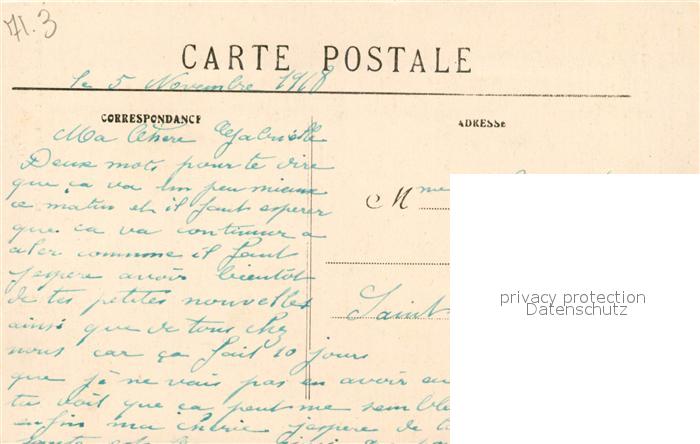 71.3
CARTE POSTALE
le 5 Novembre 1918
CORRESPONDANCE
ADRESSE
Ma Chère Gabrielle
Deux mots pour te dire
que ça va un peu mieux
ce matin et il faut esperer
que ca va continuer a
aler comme il faut
jespere avoir bientot
de tes petites nouvelles
ainsi que de tous chez
nous car ça fait 10 jours
que je ne vais pas en avoir eu
tu voit que ca peut me semble
enfin ma cherie jespere de
Mme
Saint
privacy protection
Datenschutz